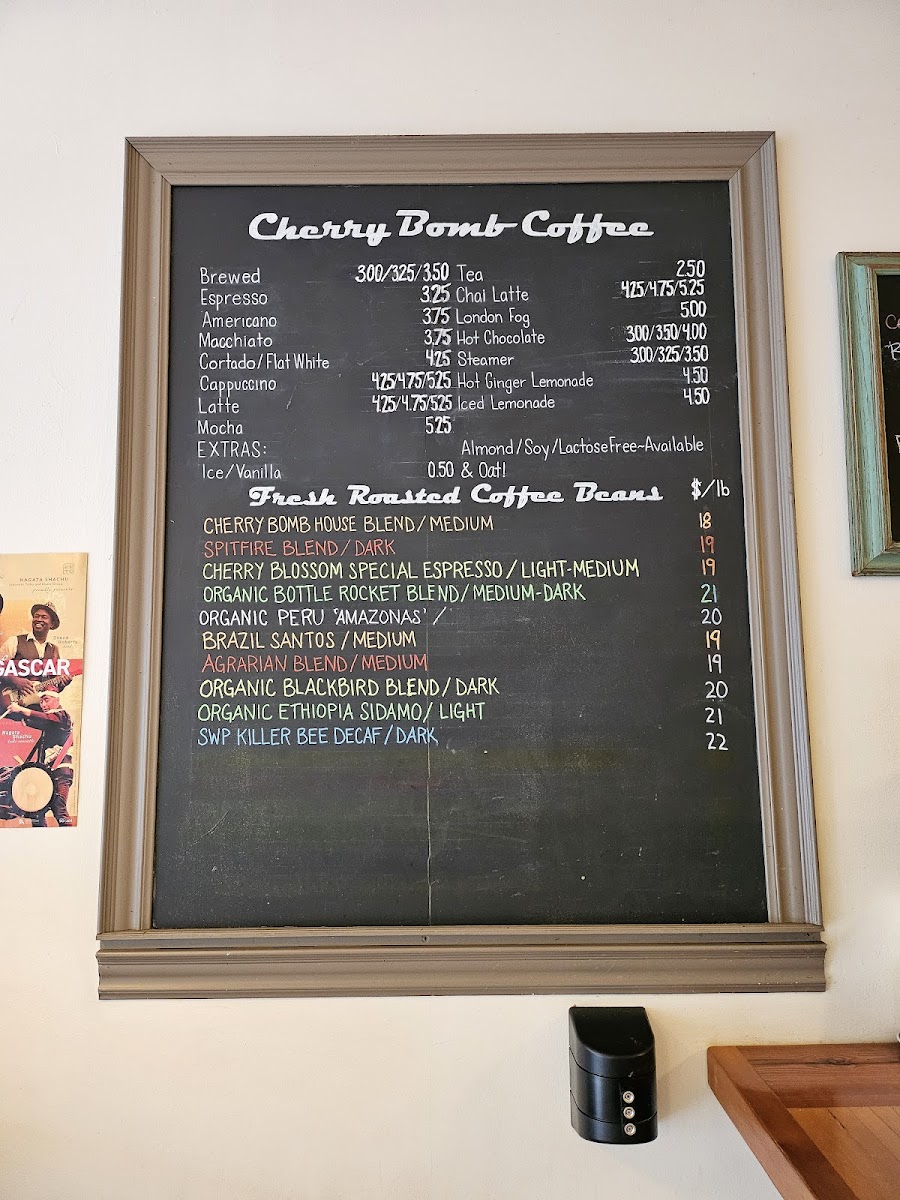 Cherry Bomb Coffee
Brewed 3.00/3.25/3.50
Espresso 3.25
Americano 3.75
Macchiato 3.75
Cortado/Flat White 4.25
Cappuccino 4.25/4.75/5.25
Latte 4.25/4.75/5.25
Mocha 5.25
EXTRAS:
Ice/Vanilla 0.50
Tea 2.50
Chai Latte 4.25/4.75/5.25
London Fog 5.00
Hot Chocolate 3.00/3.50/4.00
Steamer 3.00/3.25/3.50
Hot Ginger Lemonade 4.50
Iced Lemonade 4.50
Almond/Soy/Lactose Free~Available
& Oat!
Fresh Roasted Coffee Beans $/lb
CHERRY BOMB HOUSE BLEND/MEDIUM 18
SPITFIRE BLEND/DARK 19
CHERRY BLOSSOM SPECIAL ESPRESSO/LIGHT-MEDIUM 19
ORGANIC BOTTLE ROCKET BLEND/MEDIUM-DARK 21
ORGANIC PERU 'AMAZONAS' / 20
BRAZIL SANTOS/MEDIUM 19
AGRARIAN BLEND/MEDIUM 19
ORGANIC BLACKBIRD BLEND/DARK 20
ORGANIC ETHIOPIA SIDAMO/LIGHT 21
SWP KILLER BEE DECAF/DARK 22
NAGATA SHACHU
GASCAR
Nagata
Shachu